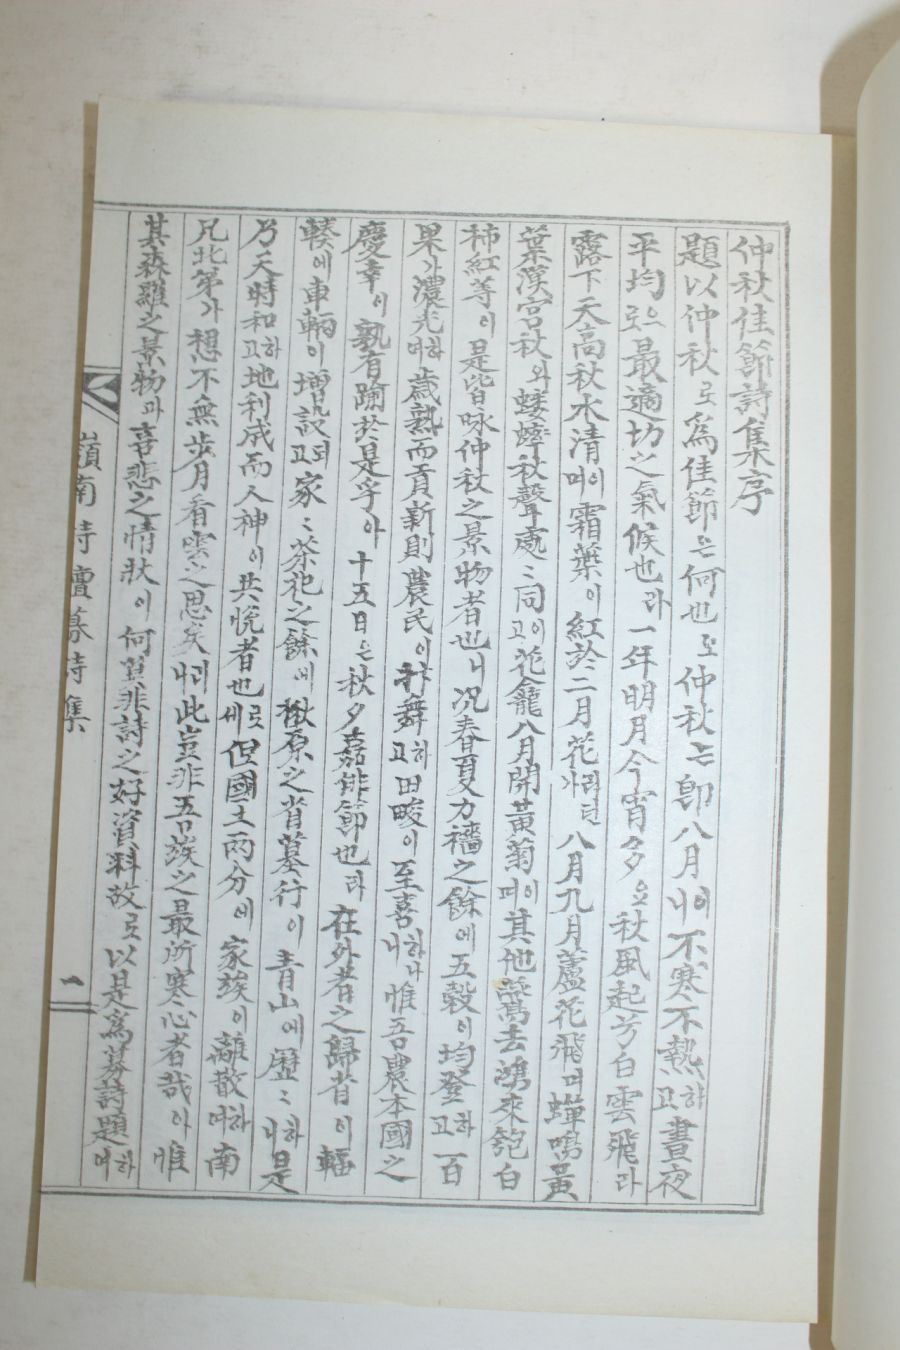 仲秋佳節詩集序
題以仲秋로爲佳節은何也오仲秋는卽八月이니不寒不熱하고晝夜
平均으로最適切之氣候也라一年明月今宵多요秋風起兮白雲飛라
露下天高秋水清이며霜葉이紅於二月花라커던八月九月蘆花飛며蟬鳴黃
葉漢宮秋와蟋蟀秋聲處〻同이고花龕八月開黃菊이며其他燕去鴻來匏白
柿紅等이是皆咏仲秋之景物者也니况春夏力穡之餘에五穀이均登하고百
果가濃光하여歲熟而貢新則農民이抃舞하고田畯이至喜하나니惟吾農本國之
慶幸이孰有踰於是乎아十五日은秋夕嘉俳節也라在外者之歸省이輻
輳에車輛이增設되고家〻茶祀之餘에楸原之省墓行이青山에歷〻하니是
乃天時和하고地利成而人神이共悅者也로세但國土兩分에家族이離散하여南
兄北弟가想不無步月看雲之思矣리니此豈非吾族之最所寒心者哉아惟
其森羅之景物과喜悲之情狀이何莫非詩之好資料故로以是爲募詩題하여
嶺南詩壇募詩集
一